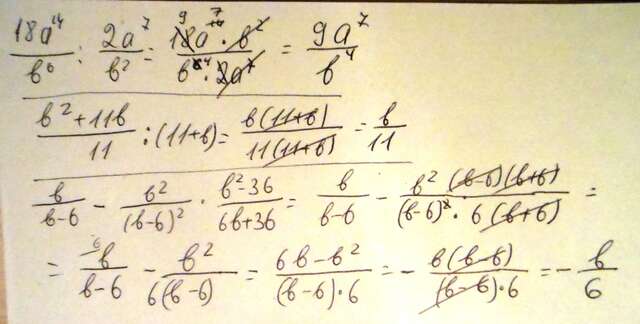 18a¹⁴/b⁶ : 2a⁷/b² = 18a¹⁴⁹⁷ · b²/b⁶⁴ · 2a⁷ = 9a⁷/b⁴
b²+11b/11 : (11+b) = b(11+b)/11(11+b) = b/11
b/b-6 - b²/(b-6)² · b²-36/6b+36 = b/b-6 - b²(b-6)(b+6)/(b-6)² · 6(b+6) =
= ⁶b/b-6 - b²/6(b-6) = 6b-b²/(b-6)·6 = - b(b-6)/(b-6)·6 = - b/6